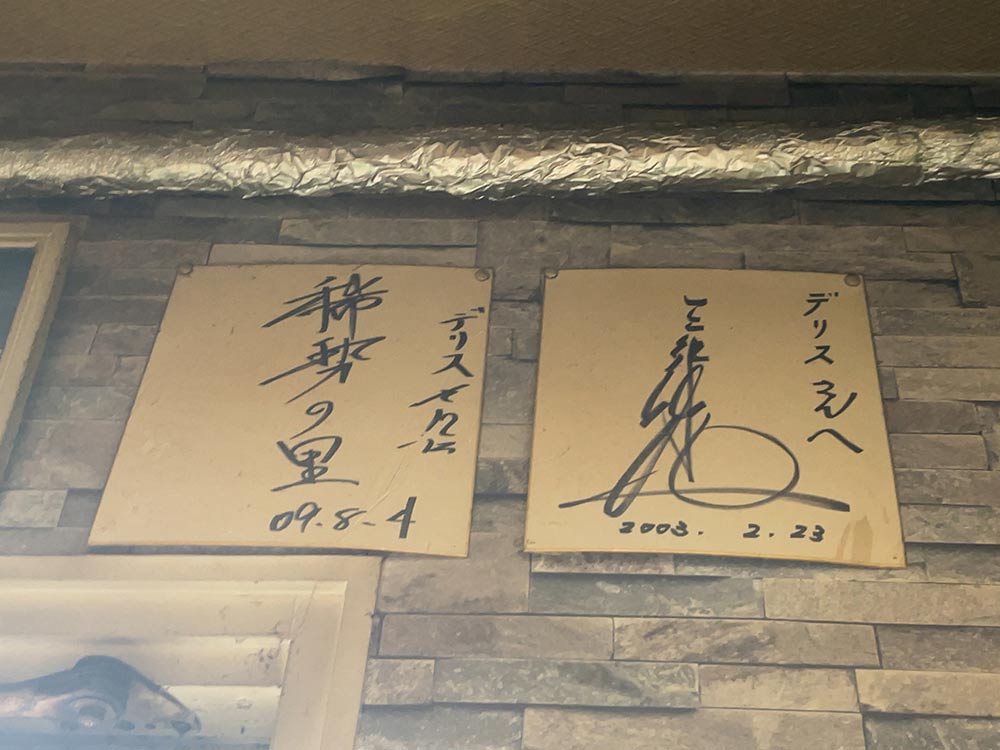 デリス
稀勢の里
09.8.4
デリスさんへ
2003. 2.23